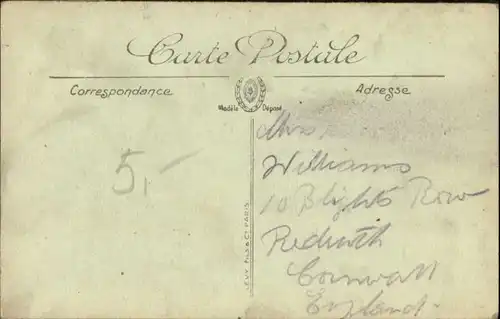 Carte Postale
Correspondance
Adresse
Modèle Déposé
Mrs
Williams
10 Blights Row
Redruth
Cornwall
England.
5,-
LEVY FILS & Cie PARIS